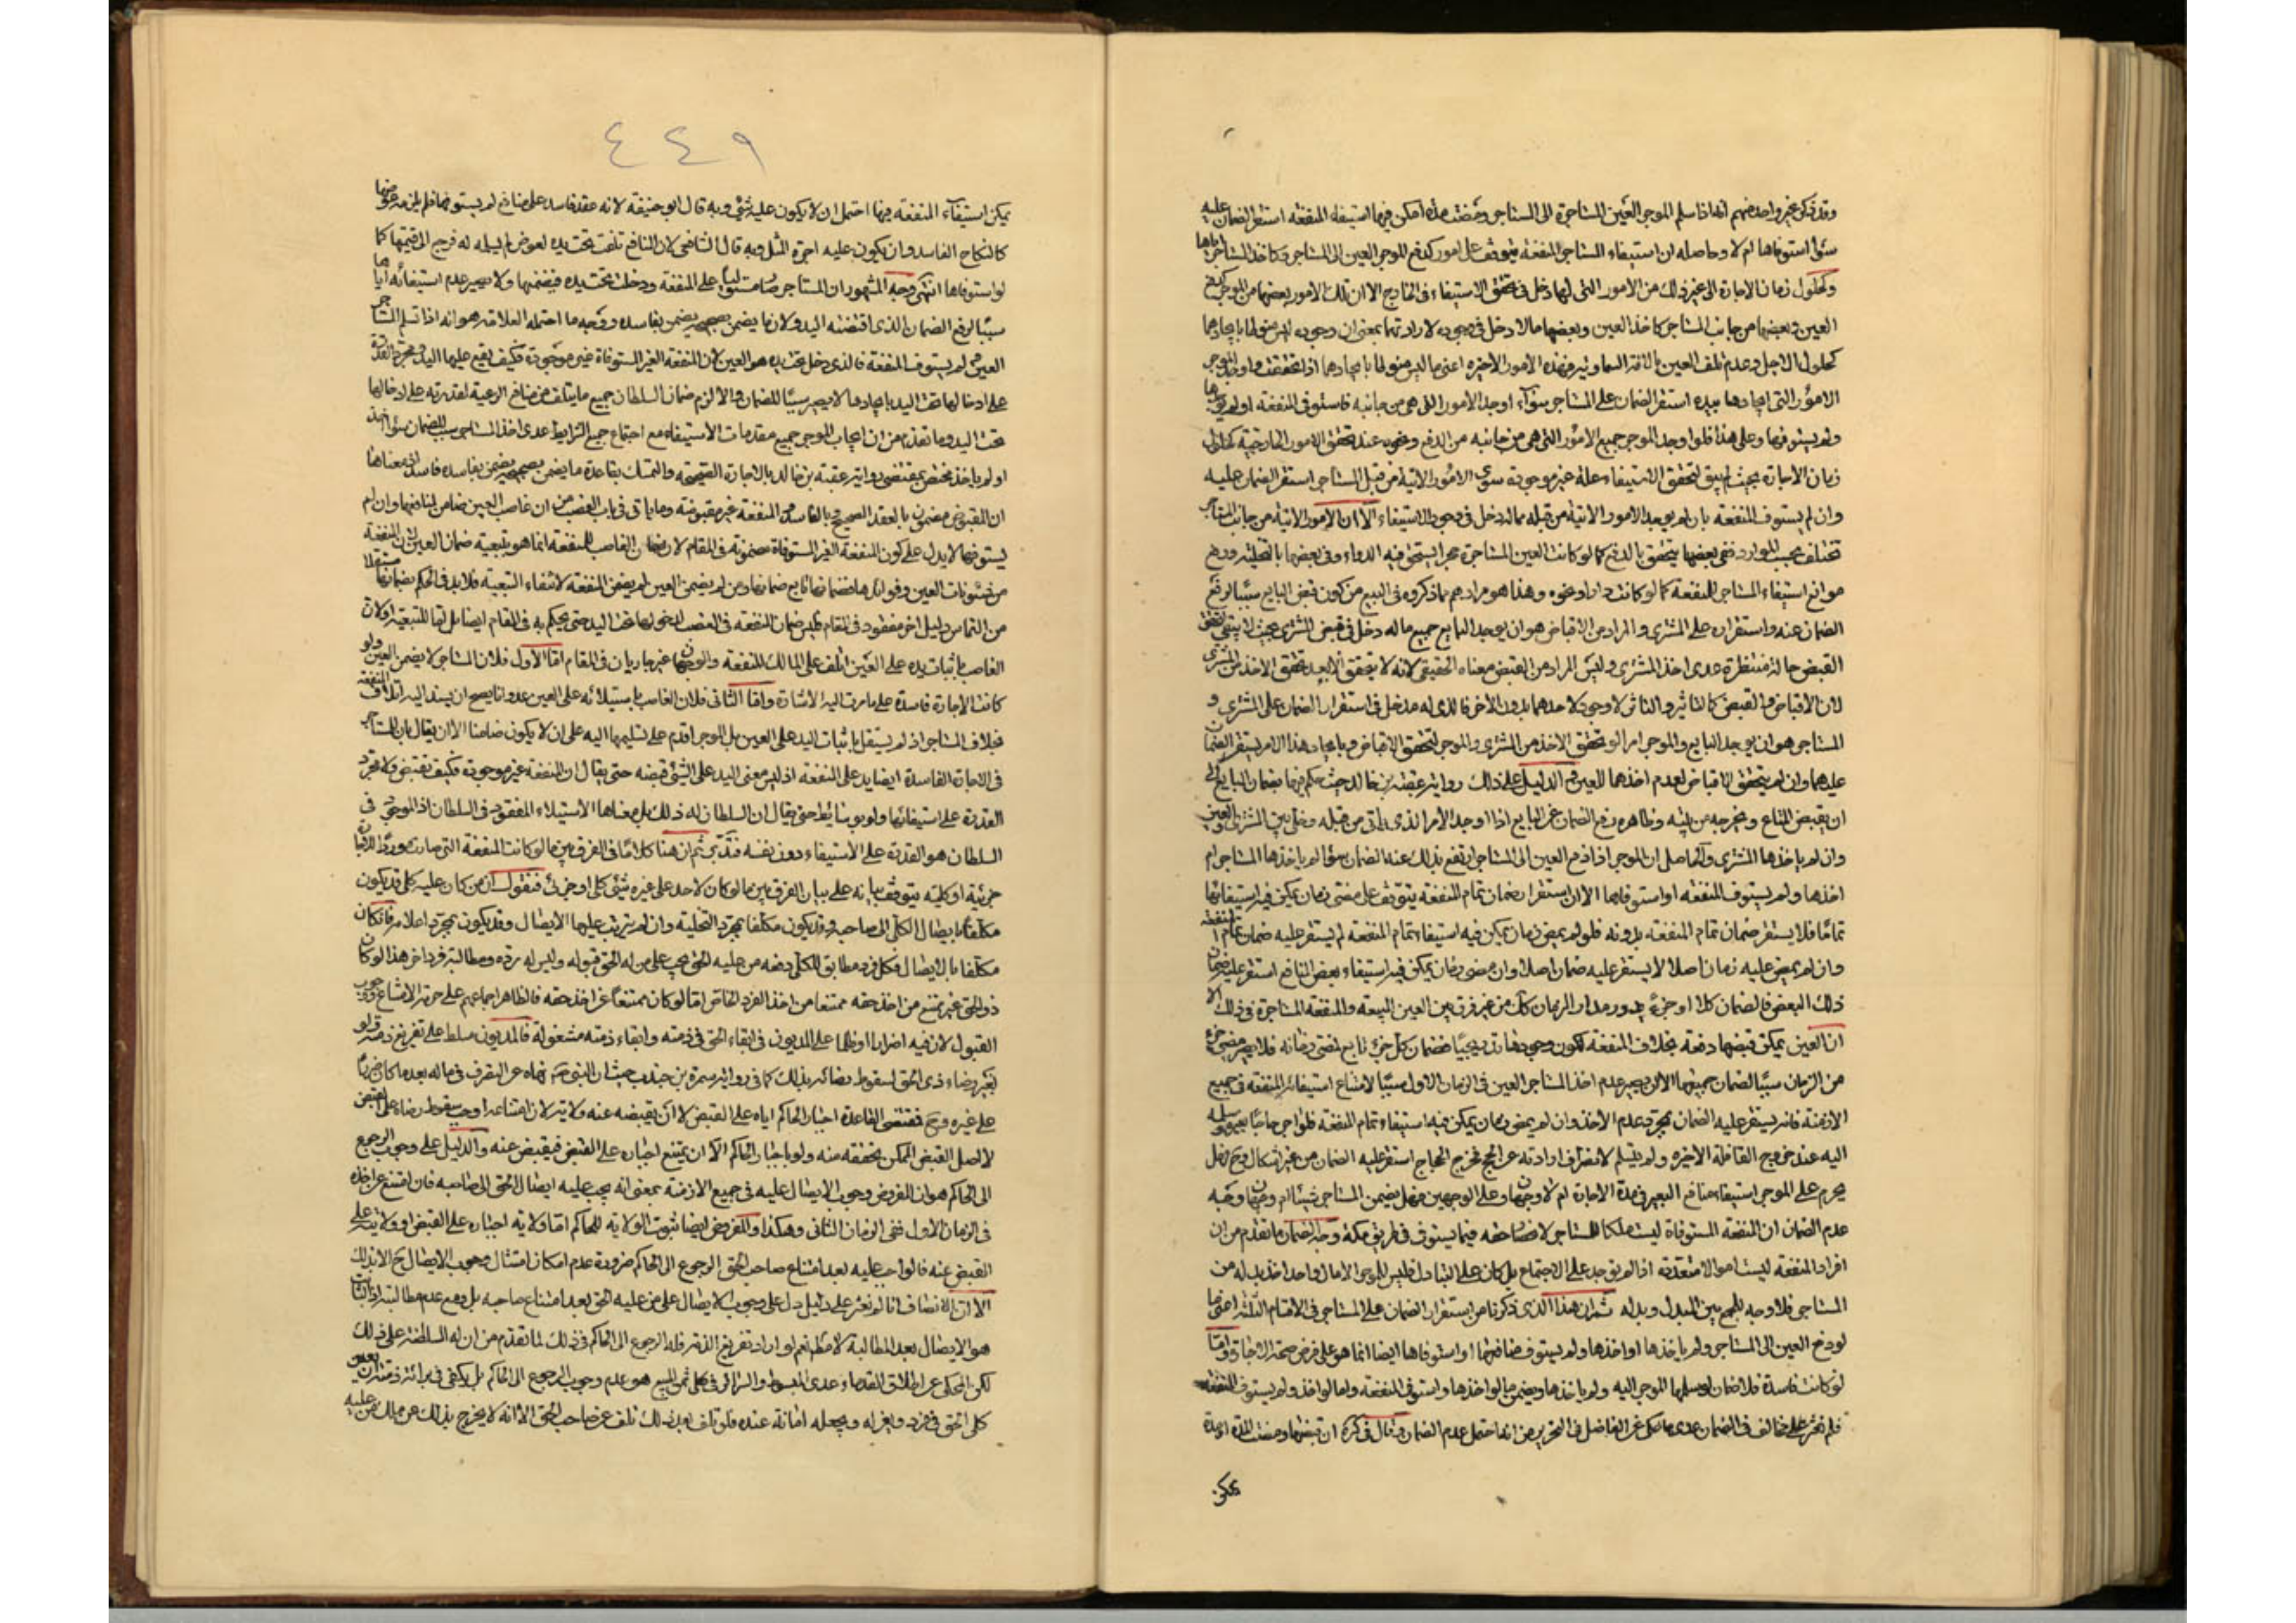 وقد ذكر غير واحد منهم انه اذا سلم الموجر العين المستاجرة الى المستاجر ومضت مدة امكن فيها استيفاء المنفعة استقر الضمان عليه
سواء استوفاها ام لا وحاصله ان استيفاء المستاجر المنفعة يتوقف على امور كدفع الموجر العين الى المستاجر وكاخذ المستاجر اياها
وكحلول زمان الاجارة الى غير ذلك من الامور التى لها دخل فى تحقق الاستيفاء فى الخارج الا ان تلك الامور بعضها من الموجر كدفع
العين وبعضها من جانب المستاجر كاخذ العين وبعضها مالا دخل فى وجوده لارادتهما بمعنى ان وجوده ليس منوطا بايجادهما
كحلول الاجل وعدم تلف العين بالافة السماوية وهذه الامور الاخيره اعنى ما ليس منوطا بايجادهما اذا تحققت واوجد الموجر
الامور التى ايجادها بيده استقر الضمان على المستاجر سواء اوجد الامور التى هى من جانبه فاستوفى المنفعة او لم يوجدها
ولم يستوفها وعلى هذا فلو اوجد الموجر جميع الامور التى هى من جانبه من الدفع ونحوه عند تحقق الامور الخارجية كحلول
زمان الاجارة بحيث لم يبق لتحقق الاستيفاء علة غير موجودة سوى الامور الاتية من قبل المستاجر استقر الضمان عليه
وان لم يستوف المنفعة بان لم يوجد الامور الاتية من قبله مما له دخل فى وجود الاستيفاء الا ان الامور الاتية من جانب الموجر
تختلف بحسب الموارد ففى بعضها يتحقق بالدفع كما لو كانت العين المستاجرة حجرا يستحق فيه الدواء وفى بعضها بالتخلية ورفع
موانع استيفاء المستاجر للمنفعة كما لو كانت دارا ونحوه وهذا هو مرادهم مما ذكروه فى البيع من كون قبض البايع سببا لرفع
الضمان عنه واستقراره على المشترى والمراد من الاقباض هو ان يوجد البايع جميع ما له دخل فى قبض المشترى بحيث لا يبقى لتحقق
القبض حالة منتظرة عدى اخذ المشترى وليس المراد من القبض معناه الحقيقى لانه لا يتحقق الا بعد تحقق الاخذ من المشترى
لان الاقباض والقبض كالتاثير والتاثر لا وجود لاحدهما بدون الاخر فالذى له مدخل فى استقرار الضمان على المشترى و
المستاجر هو ان يوجد البايع والموجر امرا لو تحقق الاخذ من المشترى والموجر لتحقق الاقباض وبايجاد هذا الامر يستقر الضمان
عليهما وان لم يتحقق الاقباض لعدم اخذهما للعين والدليل على ذلك رواية عقبة بن خالد حيث حكم فيها بضمان البايع الى
ان يقبض المتاع ويخرجه من بيته وظاهره رفع الضمان عن البايع اذا اوجد الامر الذى ياتى من قبله وخلى بين المشترى والعين
وان لم ياخذها المشترى والحاصل ان الموجر اذا دفع العين الى المستاجر ارتفع بذلك عنه الضمان سواء لم ياخذها المستاجر ام
اخذها ولم يستوف المنفعة او استوفاها الا ان استقرار ضمان تمام المنفعة يتوقف على مضى زمان يمكن فيه استيفائها
تماما فلا يستقر ضمان تمام المنفعة بدونه فلو لم يمض زمان يمكن فيه استيفاء تمام المنفعة لم يستقر عليه ضمان تمام المنفعة
وان لم يمض عليه زمان اصلا لا يستقر عليه ضمان اصلا وان مضى زمان يمكن فيه استيفاء بعض المنافع استقر عليه ضمان
ذلك البعض فالضمان كلا او جزء يدور مدار الزمان كك من غير فرق بين العين المبيعة والمنفعة المستاجرة فى ذلك الا
ان العين يمكن قبضها دفعة بخلاف المنفعة لكون وجودها تدريجيا فضمان كل جزء تابع لمضى زمانه فلا يصير مضى جزء
من الزمان سببا لضمان جميعها الا ان يصير عدم اخذ المستاجر العين فى الزمان الاول سببا لامتناع استيفاء المنفعة فى جميع
الازمنة فانه يستقر عليه الضمان بمجرد عدم الاخذ وان لم يمض زمان يمكن فيه استيفاء تمام المنفعة فلو اجر حاجا بعيره وسلمه
اليه عند خروج القافلة الاخيره ولم يتسلم لانصراف ارادته عن الحج فخرج الحجاج استقر عليه الضمان من غير اشكال وح فهل
يحرم على الموجر استيفاء منافع البعير فى مدة الاجارة ام لا وجهان وعلى الوجهين فهل يضمن المستاجر شيئا ام وجهان وجه
عدم الضمان ان المنفعة المستوفاة ليست ملكا للمستاجر لانصراف حقه فيما يستوفى فى طريق مكة وجه الضمان ما تقدم من ان
افراد المنفعة ليست اموالا متعددة اذا لم توجد على الاجتماع بل كان على التبادل فليس للموجر الا مال واحد اخذ بدله من
المستاجر فلا وجه للجمع بين المبدل وبدله ثم ان هذا الذى ذكرنا من استقرار الضمان على المستاجر فى الاقسام الثلثة اعنى ما
لو دفع العين الى المستاجر ولم ياخذها او اخذها ولم يستوف منافعها او استوفاها ايضا انما هو على فرض صحة الاجارة واما
لو كانت فاسدة فلا ضمان لو سلمها الموجر اليه ولم ياخذها ويضمن ما لو اخذها واستوفى المنفعة واما لو اخذ ولم يستوف المنفعة
فلم نعثر على مخالف فى الضمان عدى ما حكى عن الفاضل فى التحرير من انه احتمل عدم الضمان وقال فى كرة ان قبضها ومضت المدة او مدة
يمكن
٤٤٩
يمكن استيفاء المنفعة فيها احتمل ان لا يكون عليه شئ وبه قال ابو حنيفة لانه عقد فاسد على منافع لم يستوفها فلم يلزمه عوضها
كالنكاح الفاسد وان يكون عليه اجرة المثل وبه قال الشافعى لان المنافع تلفت تحت يده لعوض لم يسلم له فرجع الى قيمتها كما
لو استوفاها انتهى وجه المشهور ان المستاجر صار مستوليا على المنفعة ودخلت تحت يده فيضمنها ولا يصير عدم استيفائه اياها
سببا لرفع الضمان الذى اقتضته اليد ولان ما يضمن بصحيحه يضمن بفاسده ووجه ما احتمله العلامة هو انه اذا تسلم المستاجر
العين ولم يستوف المنفعة فالذى دخل تحت يده هو العين لان المنفعة الغير المستوفاة غير موجودة فكيف يقع عليها اليد ومجرد القدرة
على ادخالها تحت اليد بايجادها لا يصير سببا للضمان والا لزم ضمان السلطان جميع ما يتلف من منافع الرعية لقدرته على ادخالها
تحت اليد وما تقدم من ان ايجاب الموجر جميع مقدمات الاستيفاء مع اجتماع جميع الشرايط عدى اخذ المستاجر سبب للضمان سواء اخذ
او لم ياخذ مختص بمقتضى رواية عقبة بن خالد بالاجارة الصحيحة والتمسك بقاعدة ما يضمن بصحيحه يضمن بفاسده فاسد اذ معناها
ان المقبوض مضمون بالعقد الصحيح وبالفاسد والمنفعة غير مقبوضة وما ياتى فى باب الغصب من ان غاصب العين ضامن لمنافعها وان لم
يستوفها لا يدل على كون المنفعة الغير المستوفاة مضمونة فى المقام لان ضمان الغاصب للمنفعة انما هو بتبعية ضمان العين لان المنفعة
من شئونات العين وفوائدها فضمانها تابع ضمانها ومن لم يضمن العين لم يضمن المنفعة لانتفاء التبعية فلا بد فى الحكم بضمانها مستقلا
من التماس دليل اخر مفقود فى المقام وليس ضمان المنفعة فى الغصب لدخولها تحت اليد حتى يحكم به فى المقام ايضا بل اما للتبعية او لان
الغاصب باثبات يده على العين اتلف على المالك المنفعة والوجهان غير جاريان فى المقام اما الاول فلان المستاجر لا يضمن العين ولو
كانت الاجارة فاسدة على ما مرت اليه الاشارة واما الثانى فلان الغاصب باستيلائه على العين عدوانا يصح ان يسند اليه اتلاف المنفعة
بخلاف المستاجر اذ لم يستقل باثبات اليد على العين بل الموجر اقدم على تسليمها اليه على ان لا يكون ضامنا الا ان يقال بان للمستاجر
فى الاجارة الفاسدة ايضا يد على المنفعة اذ ليس معنى اليد على الشئ قبضه حتى يقال ان المنفعة غير موجودة فكيف تقبض ولا مجرد
القدرة على استيفائها ولو بوسائط حتى يقال ان السلطان له ذلك بل معناها الاستيلاء المفقود فى السلطان اذ الموجود فى
السلطان هو القدرة على الاستيفاء دون نفسه فتدبر ثم ان هنا كلاما فى الفرق بين ما لو كانت المنفعة التى صارت موردا للاجارة
جزئية او كلية يتوقف بيانه على بيان الفرق بين ما لو كان لاحد على غيره شئ كلى او جزئى فنقول ان من كان عليه كلى قد يكون
مكلفا بايصال الكلى الى صاحبه وقد يكون مكلفا بمجرد التخلية وان لم يترتب عليها الايصال وقد يكون بمجرد اعلامه فان كان
مكلفا بالايصال فكل فرد مطابق للكلى دفعه من عليه الحق يجب على من له الحق قبوله وليس له رده ومطالبة فرد اخر هذا لو كان
ذو الحق غير ممتنع من اخذ حقه ممتنعا من اخذ الفرد الخاص اما لو كان ممتنعا عن اخذ حقه فالظاهر اجماعهم على حرمة الامتناع ووجوب
القبول لان فيه اضرارا وظلما على المديون فى ابقاء الحق فى ذمته وابقاء ذمته مشغولة فالمديون مسلط على تفريغ ذمته ولو
بغير رضاء ذى الحق لسقوط رضائه بذلك كما فى رواية سمرة بن جندب حيث ان النبى ص نهاه عن التصرف فى ماله بعدما كان ضررا
على غيره وح فمقتضى القاعدة اجبار الحاكم اياه على القبض لا ان يقبضه عنه ولاية لان امتناعه اوجب سقوط رضاه على القبض
لا اصل القبض الممكن تحققه منه ولو باجبار الحاكم الا ان يمتنع اجباره على القبض فيقبض عنه والدليل على وجوب الرجوع
الى الحاكم هو ان المفروض وجوب الايصال عليه فى جميع الازمنة بمعنى انه يجب عليه ايصال الحق الى صاحبه فان امتنع عن اخذه
فى الزمان الاول ففى الزمان الثانى وهكذا والمفروض ايضا ثبوت الولاية للحاكم اما ولاية اجباره على القبض او ولاية على
القبض عنه فالواجب عليه بعد امتناع صاحب الحق الرجوع الى الحاكم ضرورة عدم امكان امتثال وجوب الايصال ح الا بذلك
الا ان الانصاف انا لم نعثر على دليل دل على وجوب الايصال على من عليه الحق بعد امتناع صاحبه بل ومع عدم مطالبته اذ الثابت
هو الايصال بعد المطالبة لا مطلقا نعم لو اراد تفريغ الذمة فله الرجوع الى الحاكم فى ذلك لما تقدم من ان له السلطنة على ذلك
لكن المحكى عن اطلاق القدماء عدى المبسوط والسرائر فى كلى ثمن المبيع هو عدم وجوب الرجوع الى الحاكم بل يكفى فى برائة ذمته ان يعين
كلى الحق فى فرد ويعزله ويجعله امانة عنده فلو تلف بعد ذلك تلف عن صاحب الحق الا انه لا يخرج بذلك عن ملك من عليه